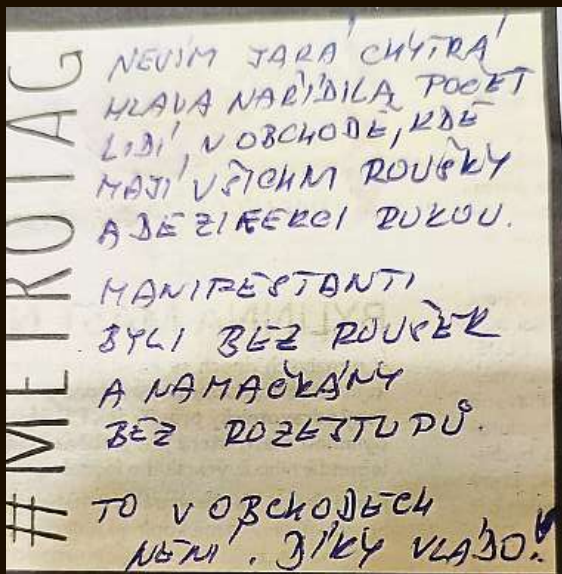 #METROTAG
NEVÍM JARÁ CHYTRÁ
HLAVA NAŘÍDILA POČET
LIDÍ, V OBCHODĚ, KDE
MAJÍ VŠICHNI ROUŠKY
A DEZIFEKCI RUKOU.
MANIFESTANTI
BYLI BEZ ROUŠEK
A NAMAČKÁNY
BEZ ROZESTUPŮ.
TO V OBCHODECH
NENÍ. DÍKY VLÁDO!